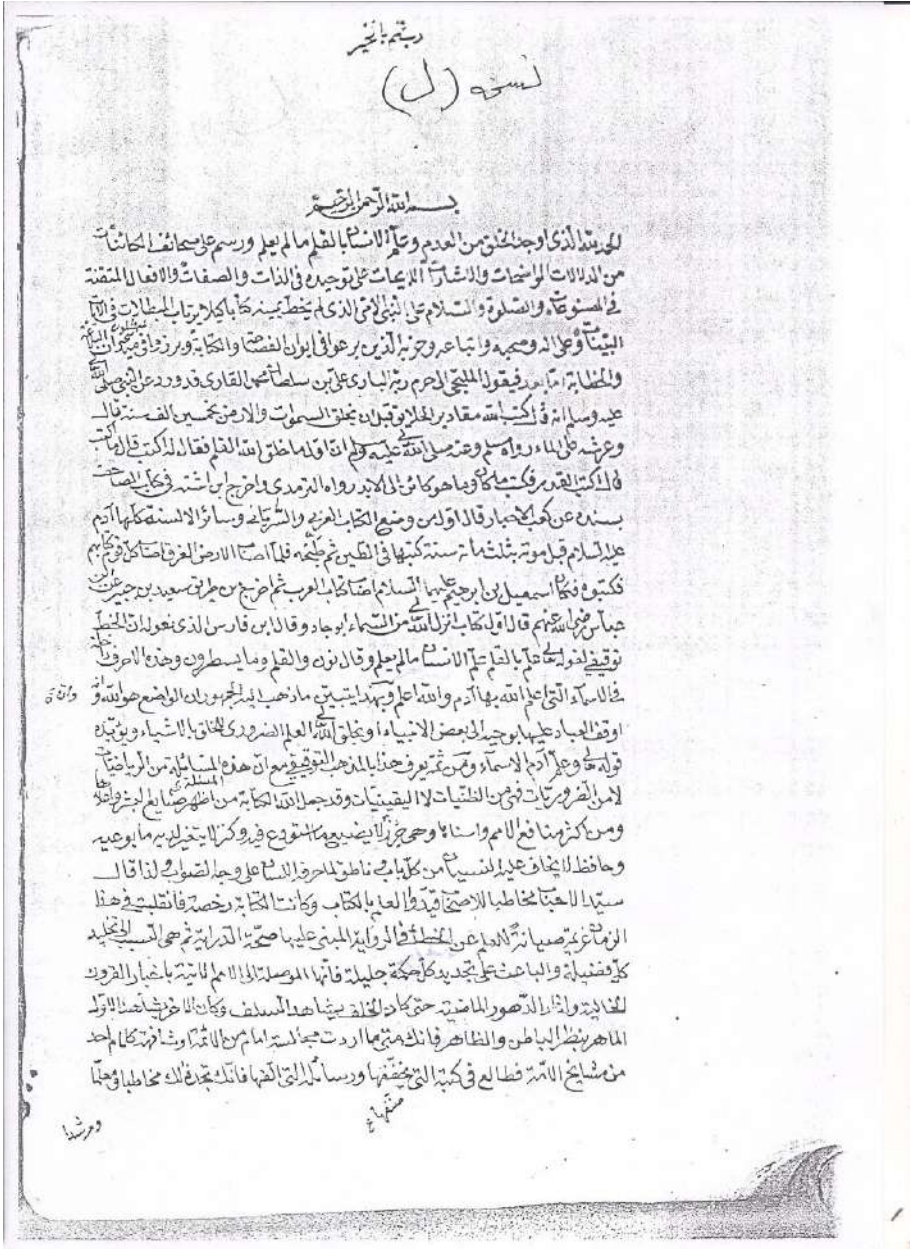 رب تمم بالخير
نسخه (ل)
بسم الله الرحمن الرحيم
الحمد لله الذى اوجد الخلق من العدم وعلم الانسان بالقلم ما لم يعلم ورسم على صحائف الكائنات
من الدلالات الواضحات والاشارات اللايحات على توحيده فى الذات والصفات والافعال المتقنة
فى المصنوعات والصلوة والسلام على النبى الامى الذى لم يخط بيمينه كتابا كيلا يرتاب المبطلات فى الآيات
البينات وعلى اله وصحبه واتباعه وحزبه الذين برعوا فى ايوان الفصاحة والكتابة وبرزوا فى ميدان البلاغة
والخطابة اما بعد فيقول الملتجى الى حرم ربه البارى على بن سلطان محمد القارى قد ورد عن النبى صلى الله
عليه وسلم انه قال كتب الله مقادير الخلايق قبل ان يخلق السموات والارض بخمسين الف سنة قال
وعرشه على الماء رواه مسلم وعنه صلى الله عليه وسلم ان اول ما خلق الله القلم فقال له اكتب قال ما اكتب
قال اكتب القدر فكتب ما كان وما هو كائن الى الابد رواه الترمذى واخرج ابن اشته فى كتاب المصاحف
بسنده عن كعب الاحبار قال اول من وضع الكتاب العربى والسريانى وسائر الالسنة كلها آدم
عليه السلام قبل موته بثلث مائة سنة كتبها فى الطين ثم طبخه فلما اصاب الارض الغرق اصاب كل قوم كتابهم
فكتبوه فكان اسمعيل بن ابرهيم عليهما السلام اصاب كتاب العرب ثم اخرج من طريق سعيد بن جبير عن ابن
عباس رضى الله عنهم قال اول كتاب انزل الله من السماء ابو جاد وقال ابن فارس الذى نقوله ان الخط
توقيفى لقوله تعالى علم بالقلم علم الانسان ما لم يعلم وقال نون والقلم وما يسطرون وهذه الاحرف داخلة
فى الاسماء التى اعلم الله بها آدم والله اعلم وبهذا يتبين ما ذهب اليه الجمهور ان الواضع هو الله
وانه
اوقف العباد عليها بوحيه الى بعض الانبياء او بخلق الله العلم الضرورى للخلق بالاشياء ويؤيده
قوله تعالى وعلم آدم الاسماء ومن ثمه يعرف هذا بالمذهب التوقيفى مع ان هذه المسئلة من الرياضيات
لا من الضروريات فهى من الظنيات لا اليقينيات وقد جعل الله الكتابة من اظهر صنايع البشر واعلاها
ومن اكبر منافع الامم واسناها وهى حرز لا يضيع ما استودع فيه وكنز لا يتغير لديه ما يوعيه
وحافظ لا يخاف عليه النسيان من كل باب وناطق لا يحرف اللسان على وجه الصواب ولذا قال
سيد الاحباب مخاطبا للاصحاب قيدوا العلم بالكتاب وكانت الكتابة رخصة فانقلبت فى هذا
الزمان عزيمة صيانة للعلم عن الخطأ فى الرواية المبنى عليها صحة الدراية ثم هى السبب الى تخليد
كل فضيلة والباعث على تجديد كل حكمة جليلة فانها الموصلة الى الامم الآتية باخبار القرون
الخالية وآثار الدهور الماضية حتى كان الخلف يشاهد السلف وكان الآخر شاهد الاول
الماهر بنظر الباطن والظاهر فانك متى ما اردت مجالسة امام من الائمة او مشافهة كلام احد
من مشايخ الامة فطالع فى كتبه التى صنفها ورسائله التى الفها فانك تجده لك مخاطبا ومعلما
ومرشدا